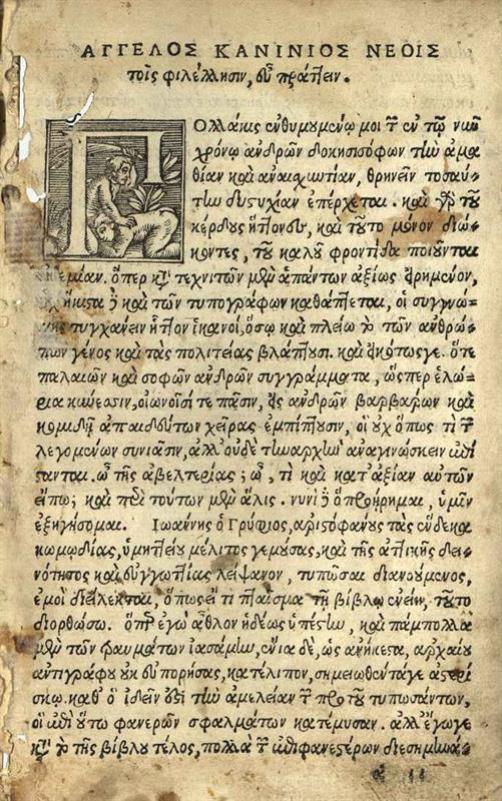 ΑΓΓΕΛΟΣ ΚΑΝΙΝΙΟΣ ΝΕΟΙΣ
τοῖς φιλέλλησιν, εὖ πράττειν.
Πολλάκις ἐνθυμουμένῳ μοι τὴν ἐν τῷ νῦν
χρόνῳ ἀνδρῶν δοκησισόφων τὴν ἀμα
θίαν καὶ ἀναισχυντίαν, θρηνεῖν τοσαύ-
την δυςυχίαν ἐπέρχεται. καὶ γὰρ τοῦ
κέρδους ἥττονες, καὶ τοῦτο μόνον διώ-
κοντες, τοῦ καλοῦ φροντίδα ποιοῦνται
οὐδεμίαν. ὅπερ κατὰ τεχνιτῶν μὲν ἁπάντων ἀξίως εἰρημένον,
οὐχ ἥκιστα δὲ καὶ τῶν τυπογράφων καθάπτεται, οἱ συγγνώ-
μης τυγχάνειν ἧττον ἱκανοί, ὅσῳ καὶ πλείω τὸ τῶν ἀνθρώ-
πων γένος καὶ τὰς πολιτείας βλάπτουσι. καὶ εἰκότως γε. ὅτε
παλαιῶν καὶ σοφῶν ἀνδρῶν συγγράμματα, ὥςπερ ἑλώ-
ρια κύνεσιν, οἰωνοῖσί τε πᾶσιν, εἰς ἀνδρῶν βαρβάρων καὶ
κομιδῇ ἀπαιδεύτων χεῖρας ἐμπίπτουσιν, οἳ οὐχ ὅπως τὶ τῶν
λεγομένων συνιᾶσιν, ἀλλ' οὐδὲ τὴν ἀρχὴν ἀναγινώσκειν ἐπί
σανται. ὢ τῆς ἀβελτερίας; ὢ, τὶ καὶ κατ' ἀξίαν αὐτῶν
εἴπω; καὶ περὶ τούτων μὲν ἅλις. νυνὶ δὲ ὃ προῄρημαι, ὑμῖν
ἐξηγήσομαι. Ἰωάννης ὁ Γρύφιος, ἀριςοφάνους τὰς ἕνδεκα
κωμῳδίας, ὑμηττείου μέλιτος γεμούσας, καὶ τῆς ἀττικῆς δει-
νότητος καὶ εὐγλωττίας λείψανον, τυπῶσαι διανοούμενος,
ἐμοὶ διείλεκται, ὅπως εἴ τι πταῖσμα τῇ βίβλῳ ἐνείη, τοῦτο
διορθώσω. ὅπερ ἐγὼ ἆθλον ἡδέως ὑπέςην, καὶ πάμπολλα
μὲν τῶν φαυμάτων ἰασάμην, ἔνια δὲ, ὡς ἀνήκεςα, ἀρχαίου
ἀντιγράφου οὐκ εὐπορήσας, κατέλιπον, σημειωθέντα γε ἀςερί
σκῳ. καθ' ὃ ἰδεῖν ἔξεςι τὴν ἀμέλειαν τῶν πρὸ τοῦ τυπωσάντων,
οἳ ἐπὶ οὕτω φανερῶν σφαλμάτων κατέμυσαν. ἀλλ' ἔγωγε
κατὰ τὸ τῆς βίβλου τέλος, πολλὰ τῶν ἐπιφανεςέρων διεσημηνά-
a ii